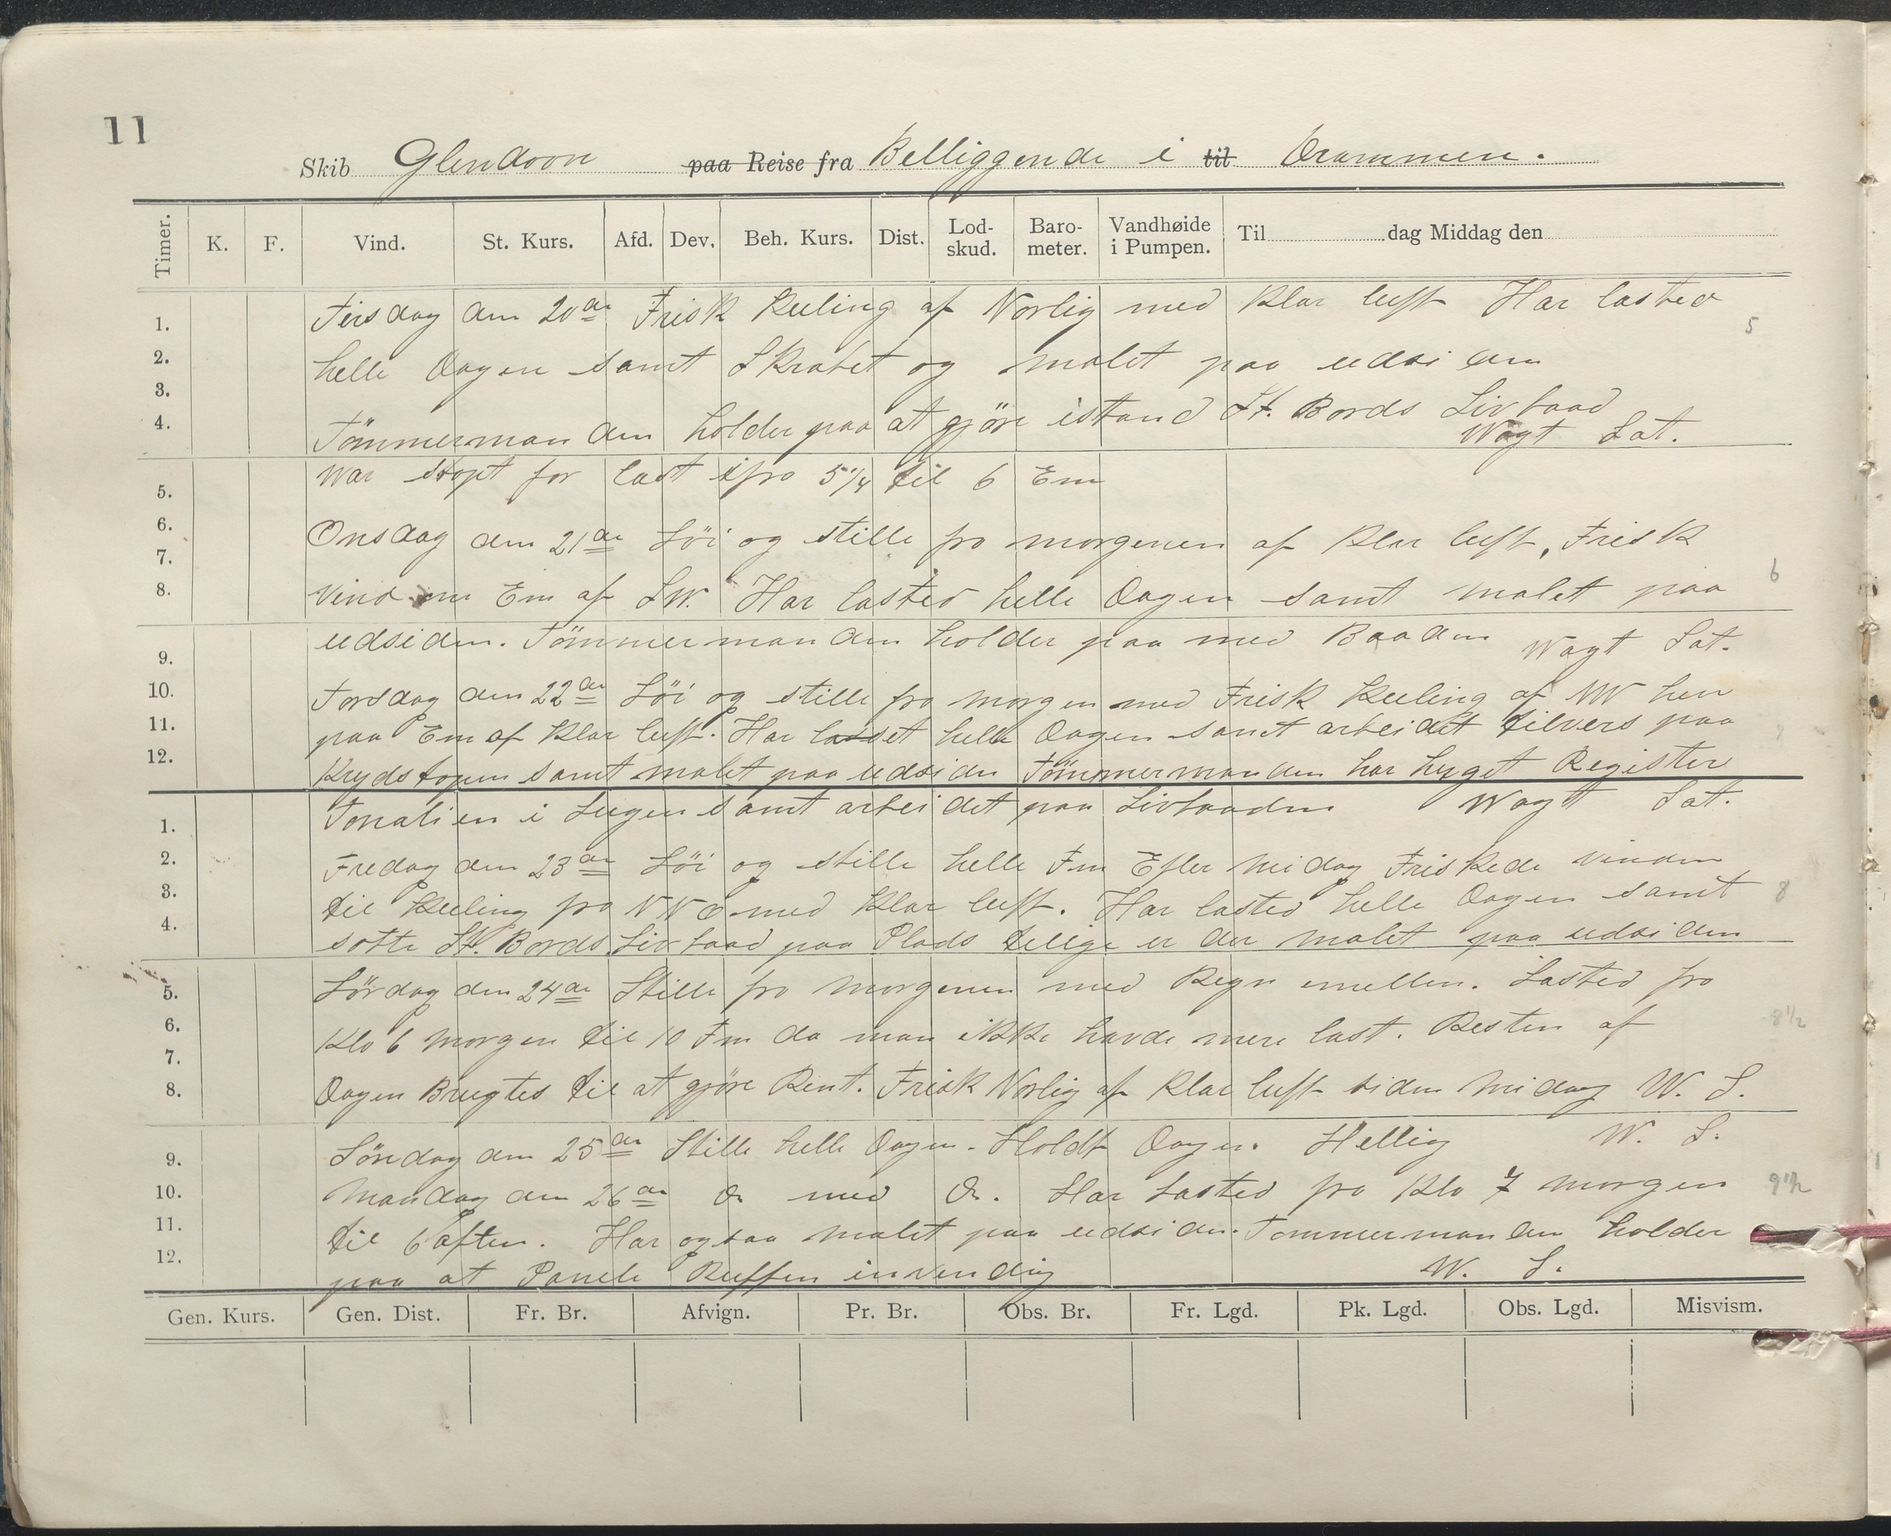 11
Skib Glendoon paa Reise fra Belliggende i til Drammen.
Timer. K. F. Vind. St. Kurs. Afd. Dev. Beh. Kurs. Dist. Lod-skud. Baro-meter. Vandhøide i Pumpen. Til dag Middag den
1. Tirsdag den 20de Frisk Kuling af Norlig med Klar luft Har lasted
5
2. helle Dagen samt Skrabet og malet paa udsiden
3.
4. Tömmermanden holder paa at gjöre istand St. Bords Livbaad
Wagt Sat.
5. War stopt for last ifra 5 1/4 til 6 Em
6. Onsdag den 21de Löi og stille fra morgenen af Klar luft, Frisk
7.
8. Vind om Em af SW. Har lasted helle Dagen samt malet paa
6
9. udsiden. Tömmermanden holder paa med Baaden Wagt Sat.
10. Torsdag den 22de Löi og stille fra morgen med Frisk Kuling af NW hen
11. paa Em af Klar luft. Har lasset helle Dagen samt arbeidet tilvers paa
12. Krydstopen samt malet paa udsiden Tömmermanden har hugget Register
1. Tonalien i Lugen samt arbeidet paa Livbaaden Wagt Sat.
2. Fredag den 23de Löi og stille helle Fm Efter Midag Friskede vinden
3. til Kuling fra NNO med Klar luft. Har lasted helle Dagen samt
8
4. satte St. Bords Livbaad paa Plads tilige er der malet paa udsiden
5. Lördag den 24de Stille fra morgenen med Regn imellem. Lasted fra
6. Klo 6 morgen til 10 Fm da man ikke havde mere last. Resten af
8 1/2
7.
8. Dagen Brugtes til at gjöre Rent. Frisk Norlig af Klar luft siden Midag W. S.
9. Söndag den 25de Stille helle Dagen. Holdt Dagen Hellig W. S.
10. Mandag den 26de Do med Do. Har Lasted fra Klo 7 morgen
9 1/2
11. til 6 aften. Har ogsaa malet paa udsiden. Tommermanden holder
12. paa at Panele Ruffen invendig W. S.
Gen. Kurs. Gen. Dist. Fr. Br. Afvign. Pr. Br. Obs. Br. Fr. Lgd. Pk. Lgd. Obs. Lgd. Misvism.